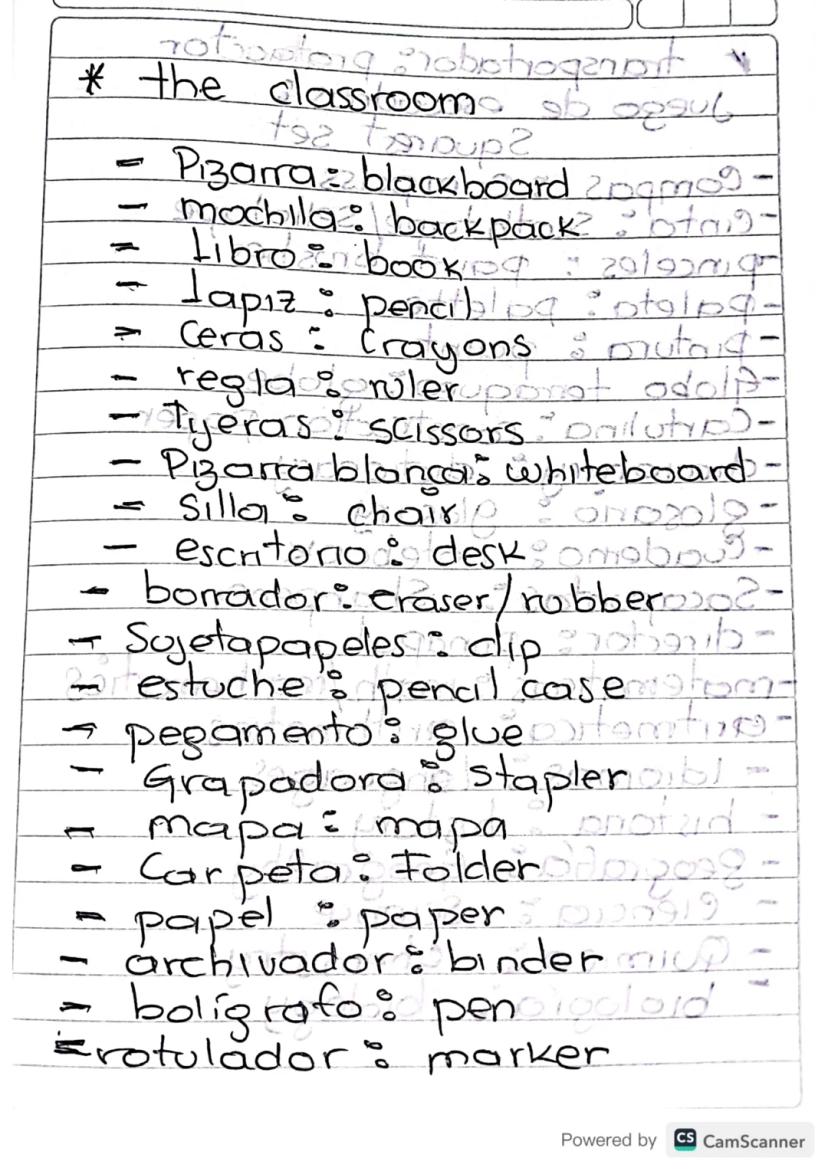 * the classroom
- Pizarra: blackboard
- mochila: backpack
- Libro: book
- lapiz: pencil
- Ceras: Crayons
- regla: ruler
- Tijeras: scissors
- Pizarra blanca: whiteboard
- Silla: chair
- escritorio: desk
- borrador: eraser/rubber
- Sujetapapeles: clip
- estuche: pencil case
- pegamento: glue
- Grapadora: stapler
- mapa: mapa
- Carpeta: Folder
- papel: paper
- archivador: binder
- bolígrafo: pen
- rotulador: marker
Powered by CS CamScanner